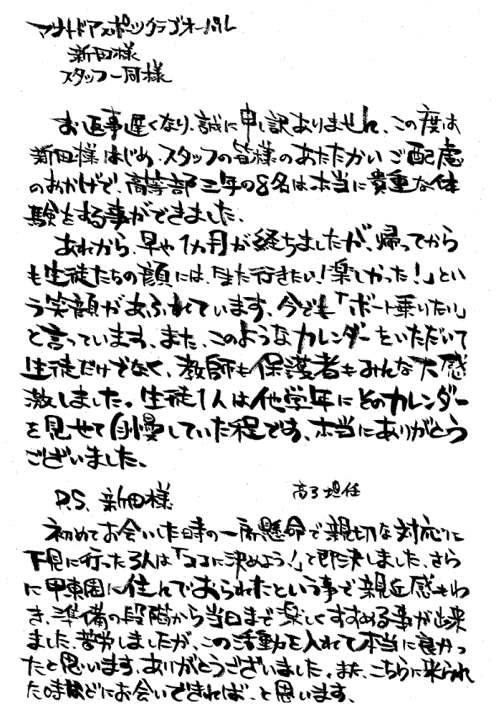 マナドアスポーツクラブオーパル
新田様
スタッフ一同様
お返事遅くなり、誠に申し訳ありません。この度は
新田様はじめ、スタッフの皆様のあたたかいご配慮
のおかげで、高等部三年の8名は本当に貴重な体
験をする事ができました。
あれから、早や1カ月が経ちましたが、帰ってから
も生徒たちの顔には、「また行きたい!楽しかった!」とい
う笑顔があふれています。今でも「ボート乗りたい」
と言っています。また、このようなカレンダーをいただいて
生徒だけでなく、教師も保護者もみんな大感
激しました。生徒1人は他学年にそのカレンダー
を見せて自慢していた程です。本当にありがとう
ございました。
P.S. 新田様
高3担任
初めてお会いした時の一所懸命で親切な対応に
下見に行った3人は「ココに決めよう!」で即決しました。さら
に甲東園に住んでおられたという事で親近感もわ
き、準備の段階から当日まで楽しくすすめる事が出来
ました。苦労しましたが、この活動を入れて本当に良かっ
たと思います。ありがとうございました。また、こちらに来られ
た時などにお会いできれば、と思います。